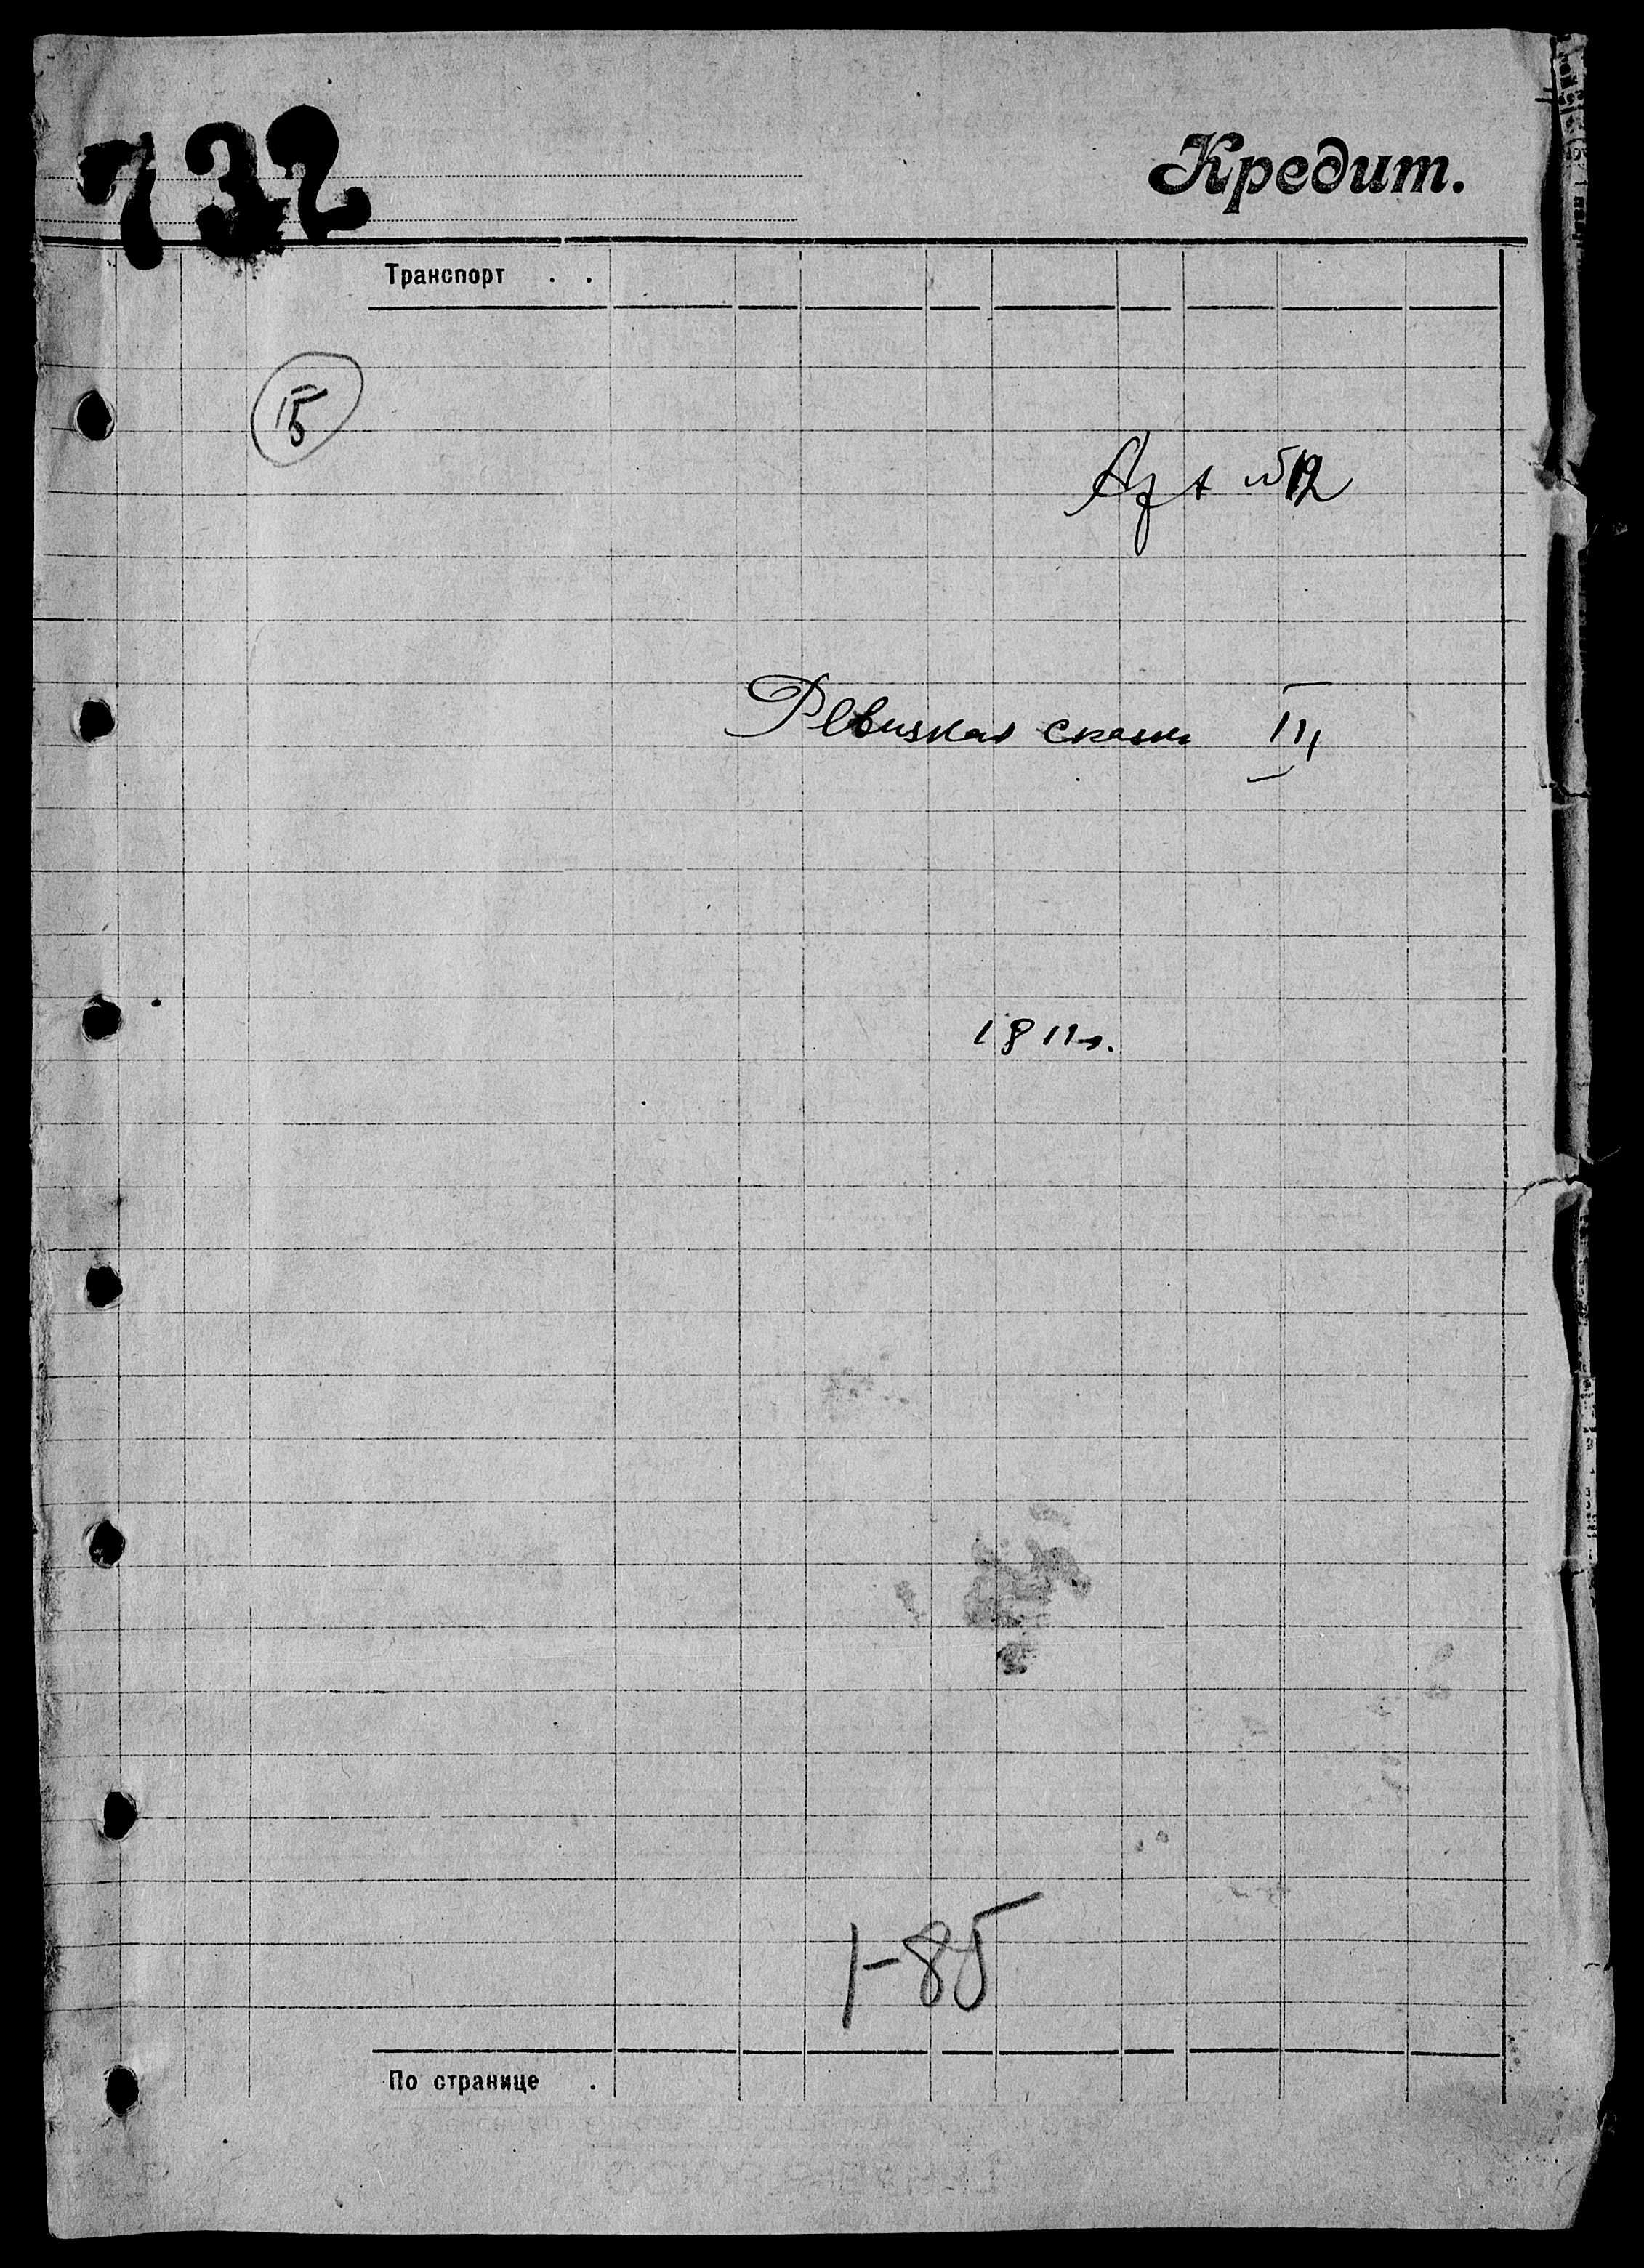 732
Кредит.
Транспорт . .
15
№12
Ревизкая сказка III
1811г.
1-85
По странице .